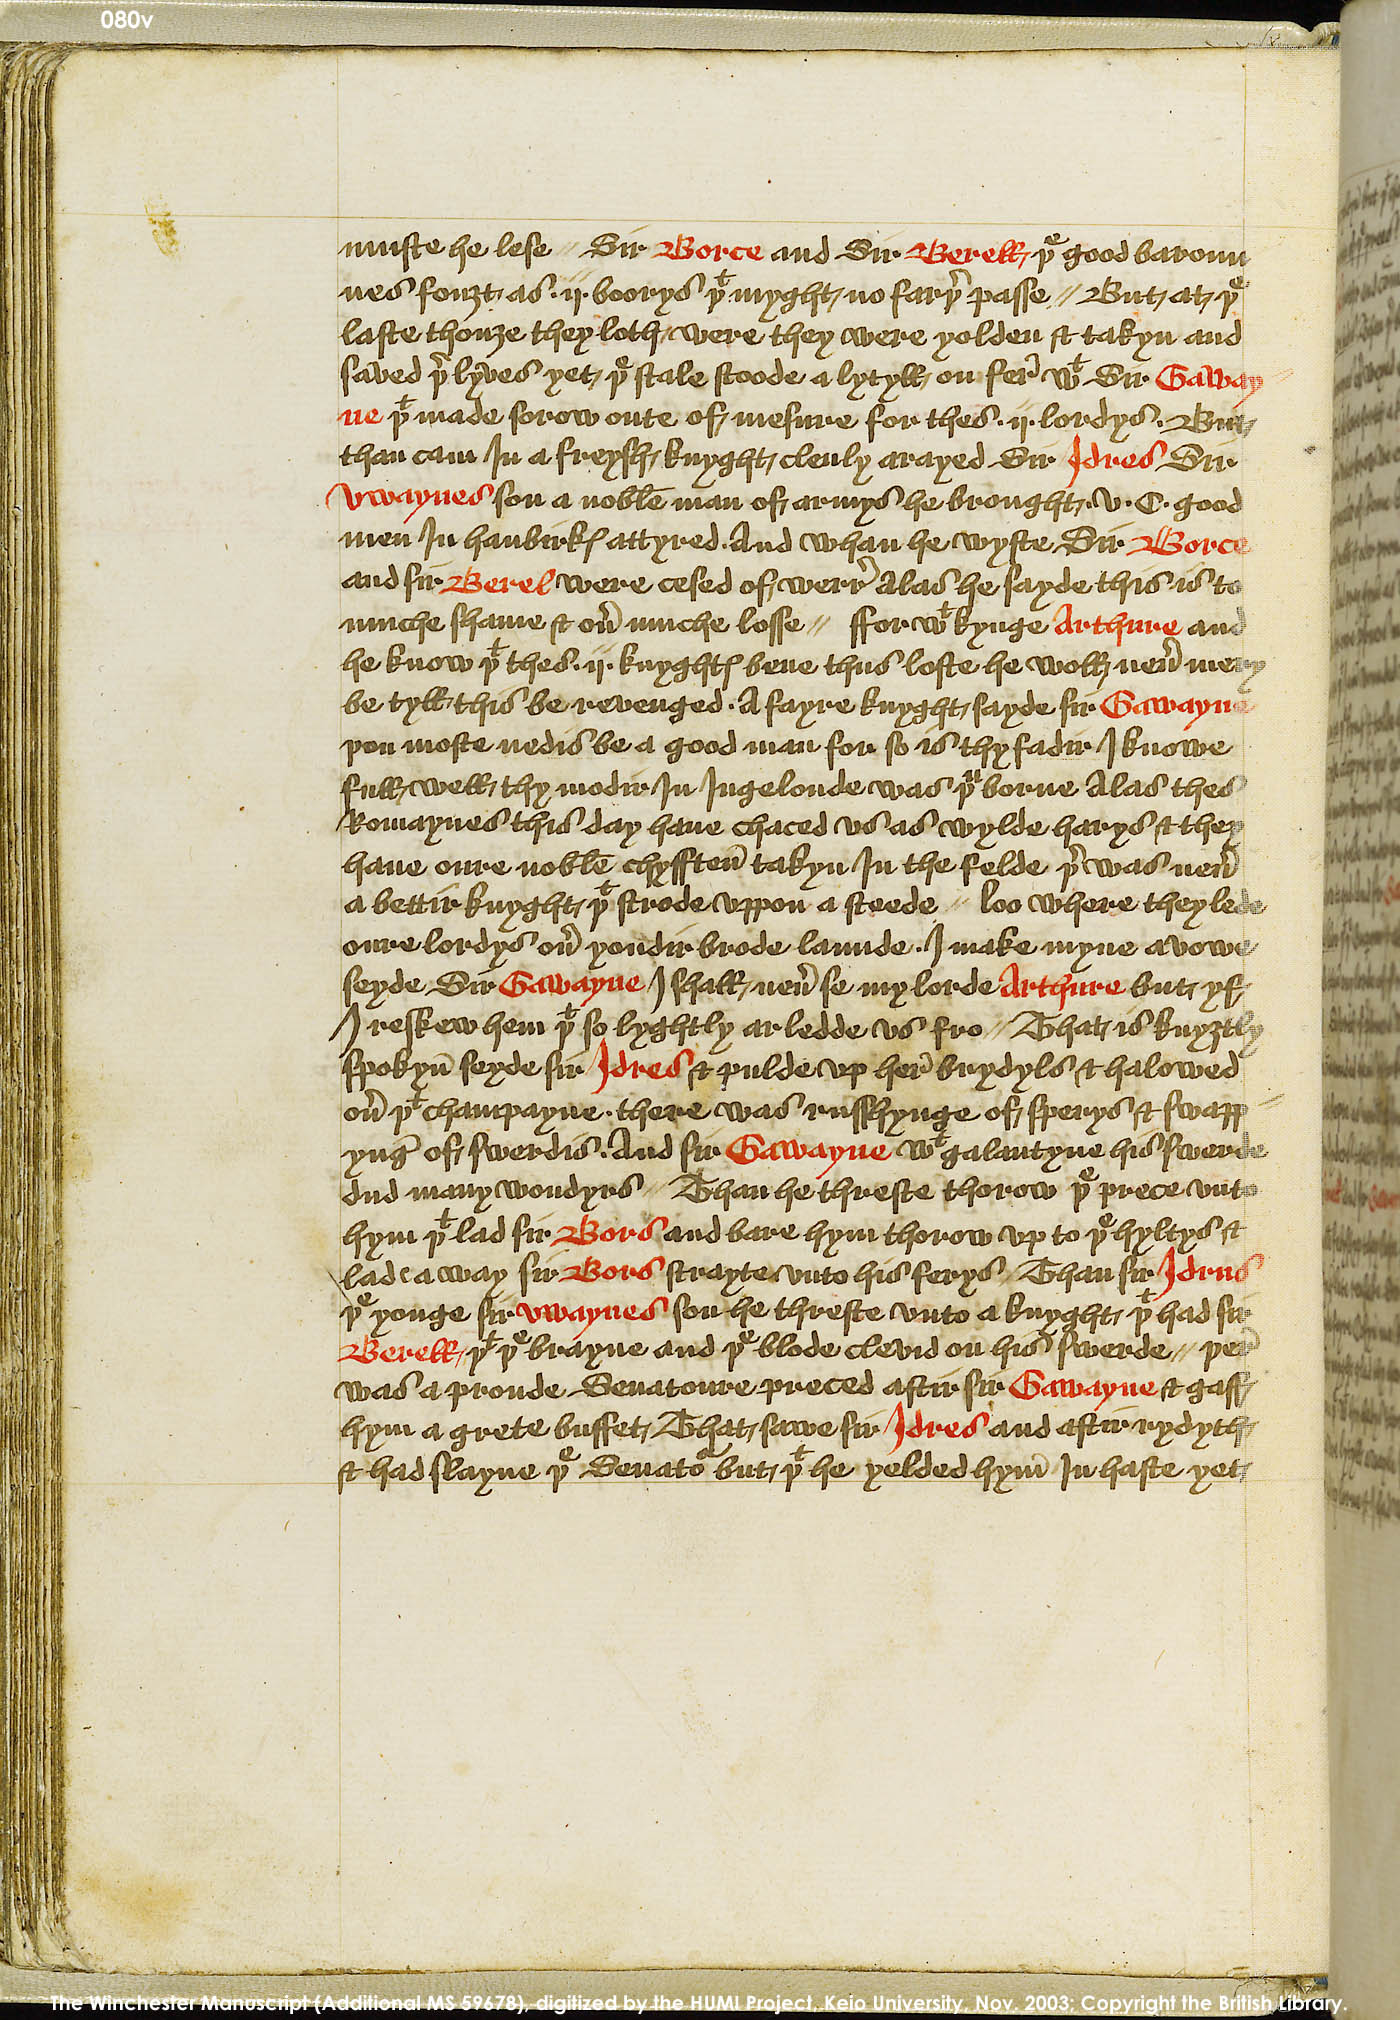 080v
muste he lese // Sir Borce and Sir Berell þe good baroun
nes fouȝt as .ij. boorys þt myght no farþer passe // But at þe
laste thouȝe they loth were they were yolden & takyn and
saved þer lyves yet þe stale stoode a lytyll on fer wt Sir Gaway
ne þt made sorow oute of mesure for thes .ij. lordys . But
than cam In a freysh knyght clenly arayed Sir Idres Sir
Vwaynes son a noble man of armys he brought .v. C. good
men In haubirkes attyred . And whan he wyste Sir Borce
and sir Berel were cesed of werre Alas he sayde this is to
muche shame & ouer muche losse // ffor wt kynge Arthure and
he know þt thes .ij. knyghtes bene thus loste he woll neuer mery
be tyll this be revenged . A fayre knyght sayde sir Gawayne
þou moste nedis be a good man for so is thy fadir I knowe
full well thy modir In Ingelonde was þu borne Alas thes
Romaynes this day haue chaced vs as wylde harys & they
haue oure noble chyfften takyn In the felde þer was neuer
a bettir knyght þt strode vppon a steede // loo where they lede
oure lordys ouer yondir brode launde . I make myne avowe
seyde Sir Gawayne I shall neuer se my lorde Arthure but yf
I reskew hem þt so lyghtly ar ledde vs fro // That is knyȝtly
spokyn seyde sir Idres & pulde vp her brydyls & halowed
ouer þt champayne . there was russhynge of sperys & swapp
ynge of swerdis . And sir Gawayne wt galantyne his swerde
dud many wondyrs // Than he threste thorow þe prece vnto
hym þt lad sir Bors and bare hym thorow vp to þe hyltys &
lade away sir Bors strayte vnto his ferys // Than sir Idrus
þe yonge sir vwaynes son he threste vnto a knyght þt had sir
Berell þt þe brayne and þe blode clevid on his swerde // þer
was a proude Senatoure preced aftir sir Gawayne & gaff
hym a grete buffet That sawe sir Idres and aftir rydyth
& had slayne þe Senatour but þt he yelded hym In haste yet
The Winchester Manuscript (Additional MS 59678), digitized by the HUMI Project, Keio University, Nov. 2003; Copyright the British Library.